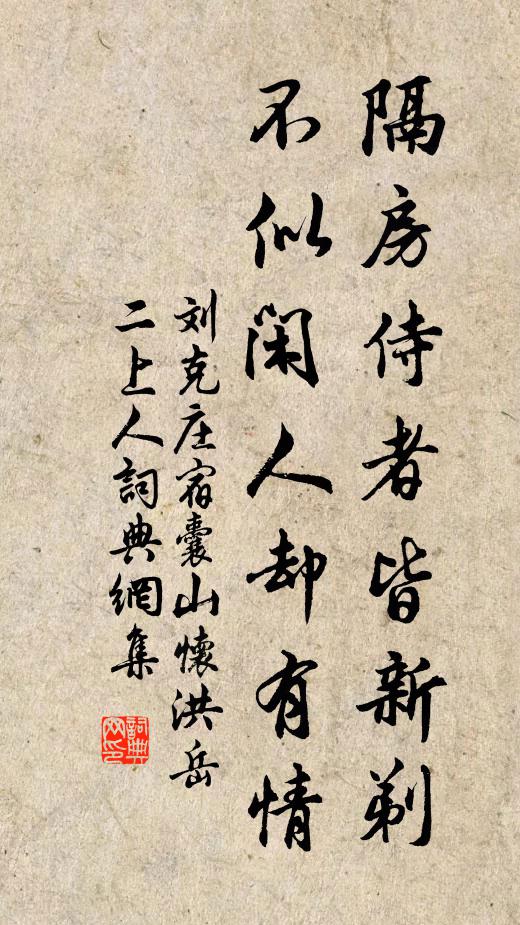 隔房侍者皆新剃
不似闲人却有情
刘克庄宿囊山懷洪岳
二上人詞典網集
詞典网印